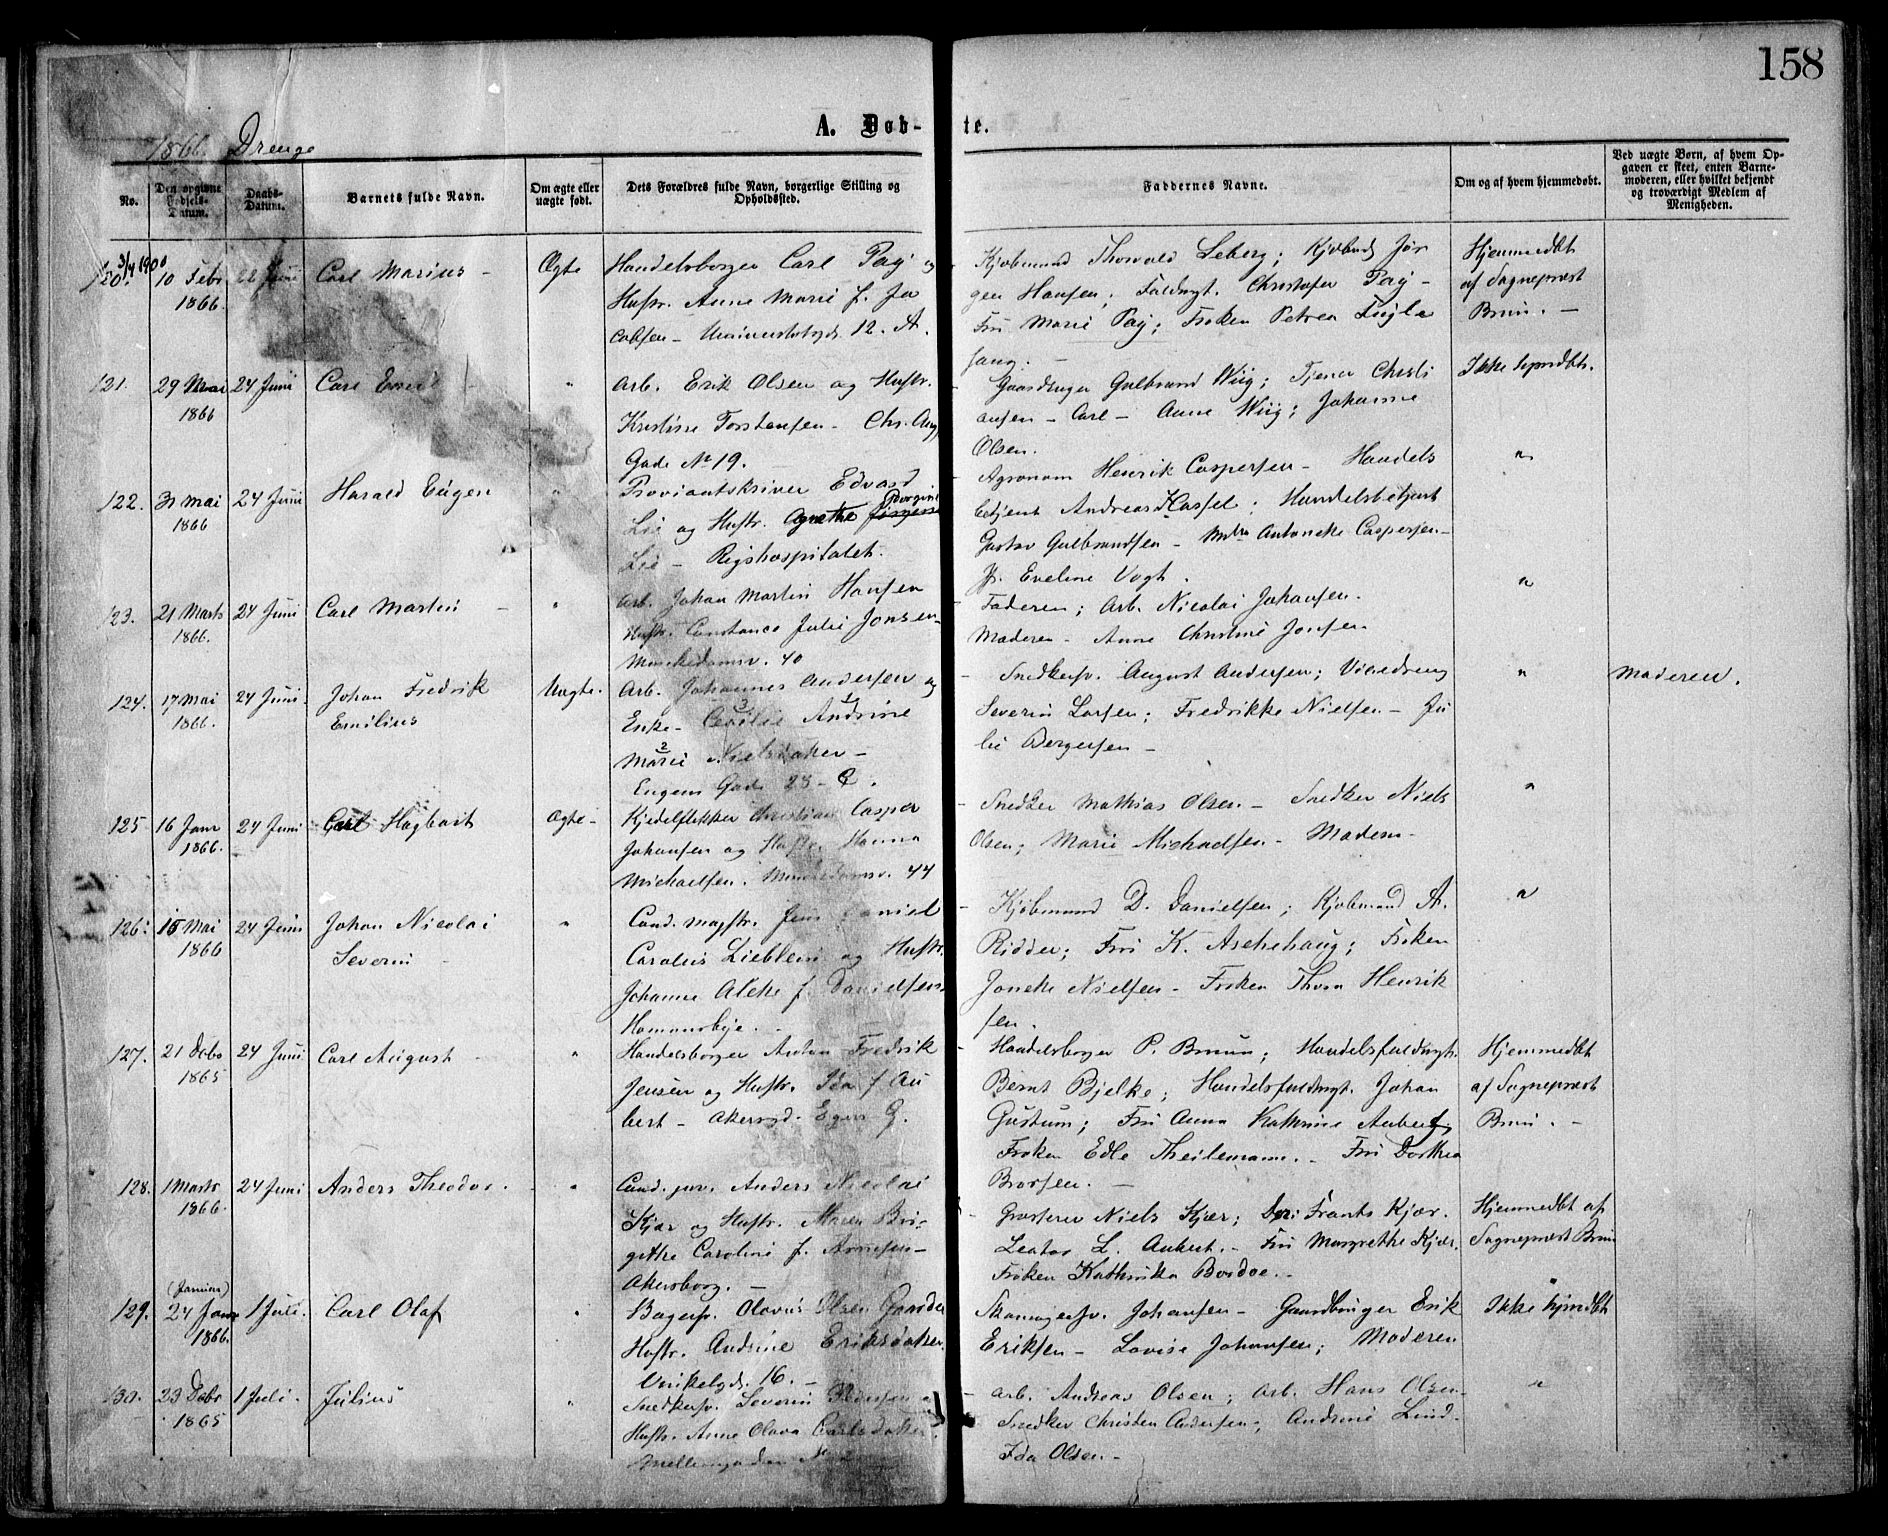 158
A. Døb-te.
1866. Drenge
No.
Den opgivne Fødsels-Datum.
Daabs-Datum.
Barnets fulde Navn.
Om ægte eller uægte født.
Dets Forældres fulde Navn, borgerlige Stilling og Opholdssted.
Faddernes Navne.
Om og af hvem hjemmedøbt.
Ved uægte Børn, af hvem Opgaven er skeet, enten Barnemoderen, eller hvilket bekjendt og troværdigt Medlem af Menigheden.
3/4 1900
120. 10 Febr 1866. Juni Carl Marius - Ægte
Handelsborger Carl Pay og
Hustr. Anne Marie f. Ja
cobsen - Universitetsgd. 12. A.
Kjøbmand Thorvald Leberg; Kjøbmd Jør
gen Hansen; Fuldmgt. Christofer Pay -
Fru Marie Pay; Frøken Petrea Fugle
sang. -
Hjemmedøbt
af Sognepræst
Bruun. -
121. 29 Mai 1866 24 Juni Carl Emil - "
Arb. Erik Olsen og Hustr.
Kristine Torstensen - Chr. Aug.
Gade No 19.
Gaardsager Gulbrand Wiig; Tjener Christi
ansen - Carl - Anne Wiig; Johanne
Olsen.
Ikke hjmdbt.
122. 31 Mai 1866 24 Juni Harald Eugen "
Proviantskriver Edvard
Lie og Hustr. Agnethe Borgine
Lie - Rigshospitalet.
Agronom Henrik Caspersen - Handels
betjent Andreas Hassel; Handelsbetjent
Gustav Gulbrandsen - Antonette Caspersen -
Fr. Eveline Vogt.
"
123. 21 Marts 1866. 24 Juni Carl Martin - "
Arb. Johan Martin Hansen
Hustr. Constance Julie Jonsen -
Munkedamsv. 40
Faderen; Arb. Nicolai Johansen.
Moderen - Anne Christine Jonsen
"
124. 17 Mai 1866. 24 Juni. Johan Fredrik
Emilius
Uægte.
Arb. Johannes Andersen og
Enke - Cecilie Andrine
Marie Nielsdatter -
Eugens Gade 28 - C.
Snedkersv. August Andersen; Visedreng
Severin Larsen; Fredrikke Nielsen - Ju
lie Bergersen -
"
Moderen.
125 16 Janr 1866. 24 Juni Carl Hagbart Ægte -
Kjedelflikker Christian Casper
Johansen og Hustr. Hanna
Michaelsen. Munkedamsv. 44
Snedker Mathias Olsen. - Snedker Niels
Olsen; Marie Michaelsen - Moderen -
"
126. 15 Mai 1866 24 Juni Johan Nicolai
Severin -
"
Cand. magstr. Jens Daniel
Carolus Lieblein og Hustr.
Johanne Aleke f. Danielsen -
Homansbye. -
Kjøbmand D. Danielsen; Kjøbmand A.
Ridder; Fru K. Aschehaug; Frøken
Jonette Nielsen - Frøken Thora Henrik
sen.
"
127. 21 Debr 1865 24 Juni Carl August - "
Handelsborger Anton Fredrik
Jensen og Hustr. Ida f. Au
bert - Akersgd. Egers G.
Handelsborger P. Bruun; Handelsfuldmgt.
Bernt Bjelke; Handelsfuldmgt. Johan
Gustum; Fru Anna Kathrine Aubert;
Frøken Edle Theilemann. - Fru Dorthea
Brorsen. -
Hjemmedbt
af Sognepræst
Bruun. -
128. 1 Marts 1866. 24 Juni Anders Theodor. - "
Cand. jur. Anders Nicolai
Kjær og Hustr. Maren Bri-
gitthe Caroline f. Arnesen -
Akersborg. -
Grosserer Niels Kjær; Frants Kjær.
L. Aubert. - Fru Margrethe Kjær.
Frøken Kathinka Bordoe. -
Hjemmedbt af
Sognepræst Bruun
129. (Januar) 24 Janr 1866. 1 Juli. Carl Olaf "
Bagersv. Olavus Olsen
Hustr. Andrine Eriksdatter.
Vinkelgd. 16. -
Johansen - Gaardbruger Erik
Eriksen - Lovise Johansen; Moderen
Ikke hjmdbt
130. 23 Debr 1865 1 Juli. Julius "
Snedkersv. Severin Pedersen og
Hustr. Anne Olava Carlsdatter.
Møllergaden No 2
Arb. Andreas Olsen; Arb. Hans Olsen -
Snedker Christen Andersen; Andrine Lind -
Ida Olsen -
"